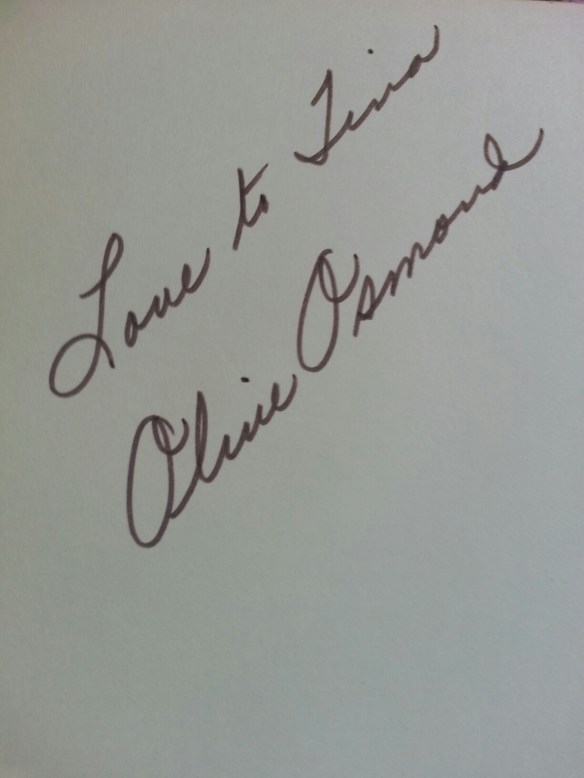 Love to Tina
Olive Osmond